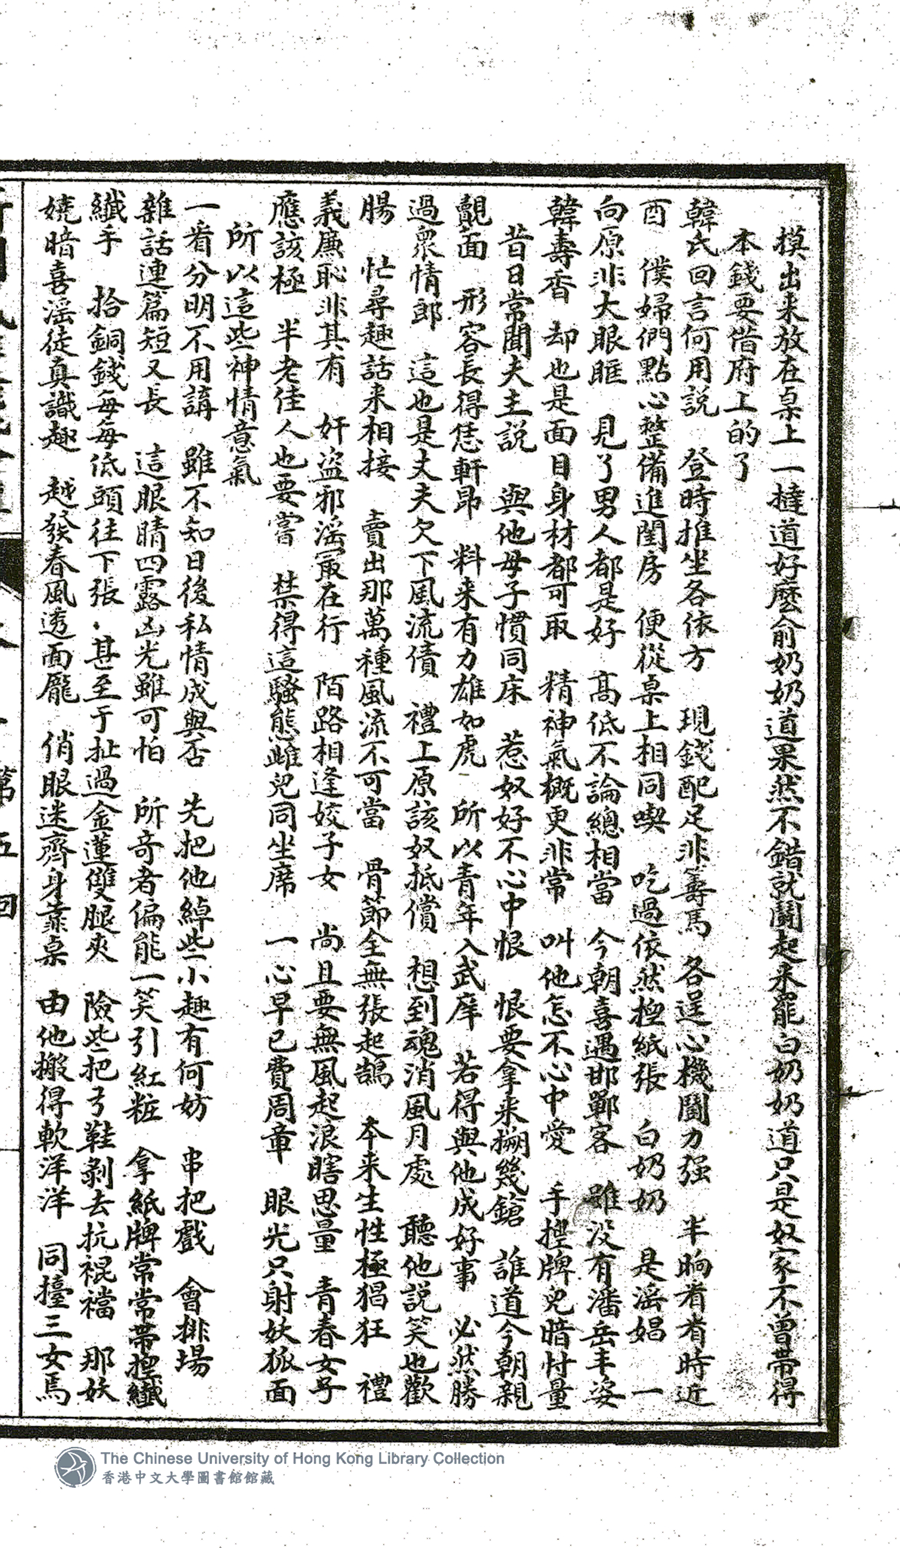 摸出来放在桌上一㨫道好麽俞奶奶道果然不錯就鬬起来罷白奶奶道只是奴家不曾帶得
本錢要借府上的了
韓氏回言何用說 登時推坐各依方 現錢配足非籌馬 各逞心機鬬力强 半晌看看時近
酉 僕婦們點心整備進閨房 便從桌上相同喫 吃過依然揑紙張 白奶奶 是滛娼 一
向原非大眼眶 見了男人都是好 高低不論總相當 今朝喜遇邯鄲客 雖没有潘岳丰姿
韓壽香 却也是面目身材都可取 精神氣概更非常 叫他怎不心中愛 手揑牌兒暗忖量
昔日常聞夫主說 與他母子慣同床 惹奴好不心中恨 恨要拿来搠幾鎗 誰道今朝親
覿面 形容長得恁軒昂 料来有力雄如虎 所以青年入武庠 若得與他成好事 必然勝
過衆情郎 這也是丈夫欠下風流債 禮上原該奴抵償 想到魂消風月處 聽他說笑也歡
腸 忙尋趣話来相接 賣出那萬種風流不可當 骨節全無張起鵲 夲来生性極猖狂 禮
義廉恥非其有 奸盗邪滛最在行 陌路相逢姣子女 尚且要無風起浪瞎思量 青春女子
應該極 半老佳人也要嘗 禁得這騷態雌兒同坐席 一心早已費周章 眼光只射妖狐面
所以這些神情意氣
一看分明不用講 雖不知日後私情成與否 先把他綽些小趣有何妨 串把戲 會排場
雜話連篇短又長 這眼睛四露凶光雖可怕 所奇者偏能一笑引紅粧 拿紙牌常常帶揑纖
纖手 拾銅錢每每低頭往下張 甚至于扯過金蓮雙腿夾 險些把弓鞋剝去抗裩襠 那妖
嬈暗喜滛徒真識趣 越發春風透面龎 俏眼迷齊身靠桌 由他搬得軟洋洋 同擡三女馬
第五回
The Chinese University of Hong Kong Library Collection
香港中文大學圖書館館藏